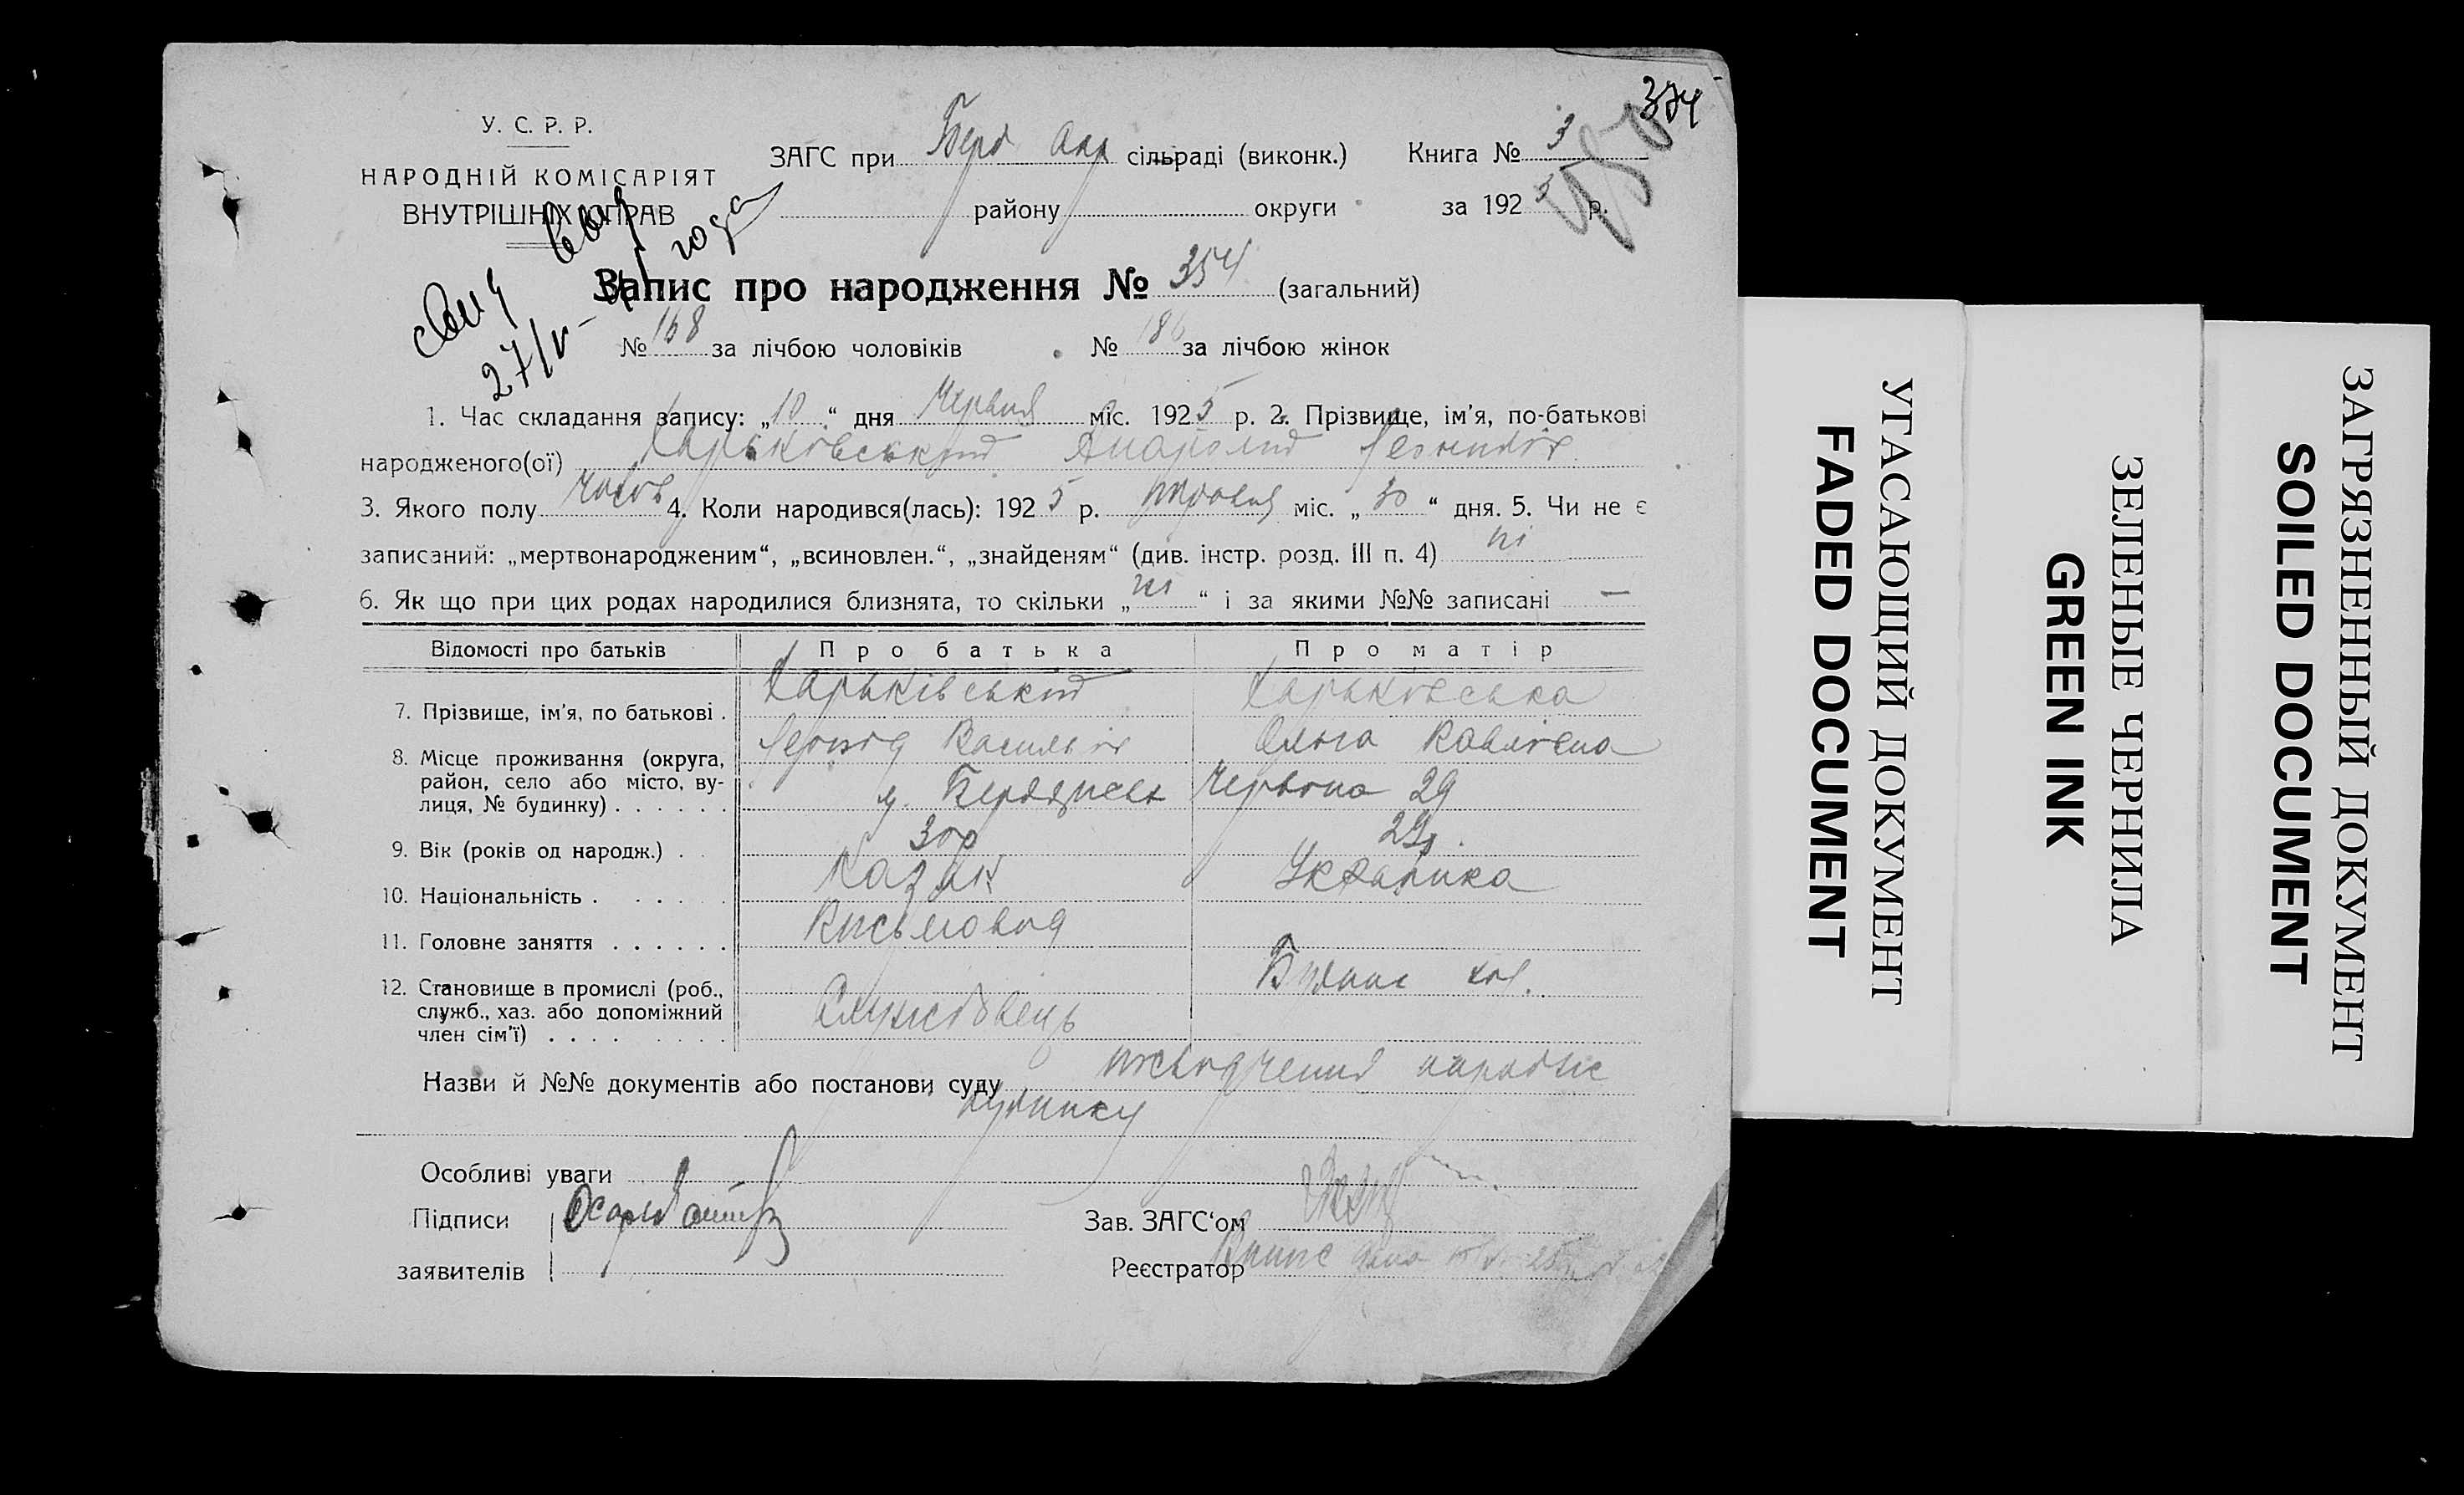 374
У. С. Р. Р.
НАРОДНІЙ КОМІСАРІЯТ
ВНУТРІШНІХ СПРАВ
ЗАГС при Берд Окр сільраді (виконк.) Книга № 3
району округи за 1925 р.
27/V-41 года
Запис про народження № 354 (загальний)
№ 168 за лічбою чоловіків № 186 за лічбою жінок
1. Час складання запису: „10“ дня Червня міс. 1925 р. 2. Прізвище, ім’я, по-батькові
народженого(ої) Харьковський Анатолий
3. Якого полу 4. Коли народився(лась): 1925 р. травня міс. „30“ дня. 5. Чи не є
записаний: „мертвонародженим“, „всиновлен.“, „знайденям“ (див. інстр. розд. III п. 4) ні
6. Як що при цих родах народилися близнята, то скільки „ні“ і за якими №№ записані —
Відомості про батьків Про батька Про матір
7. Прізвище, ім’я, по батькові . Харьківський Харьковська
Леонід Васильов Ольга Павлівна
8. Місце проживання (округа,
район, село або місто, ву-
лиця, № будинку) . . . . . . м. Бердянськ Червона 29
9. Вік (років од народж.) . 30р
10. Національність . . . . . Казак Українка
11. Головне заняття . . . . . . Письмовод
12. Становище в промислі (роб.,
служб., хаз. або допоміжний
член сім’ї) . . . . Службовець
Назви й №№ документів або постанови суду посвідчення
будинку
Особливі уваги
Підписи
заявителів
Зав. ЗАГС‘ом
Реєстратор
УГАСАЮЩИЙ ДОКУМЕНТ
FADED DOCUMENT
ЗЕЛЕНЫЕ ЧЕРНИЛА
GREEN INK
ЗАГРЯЗНЕННЫЙ ДОКУМЕНТ
SOILED DOCUMENT